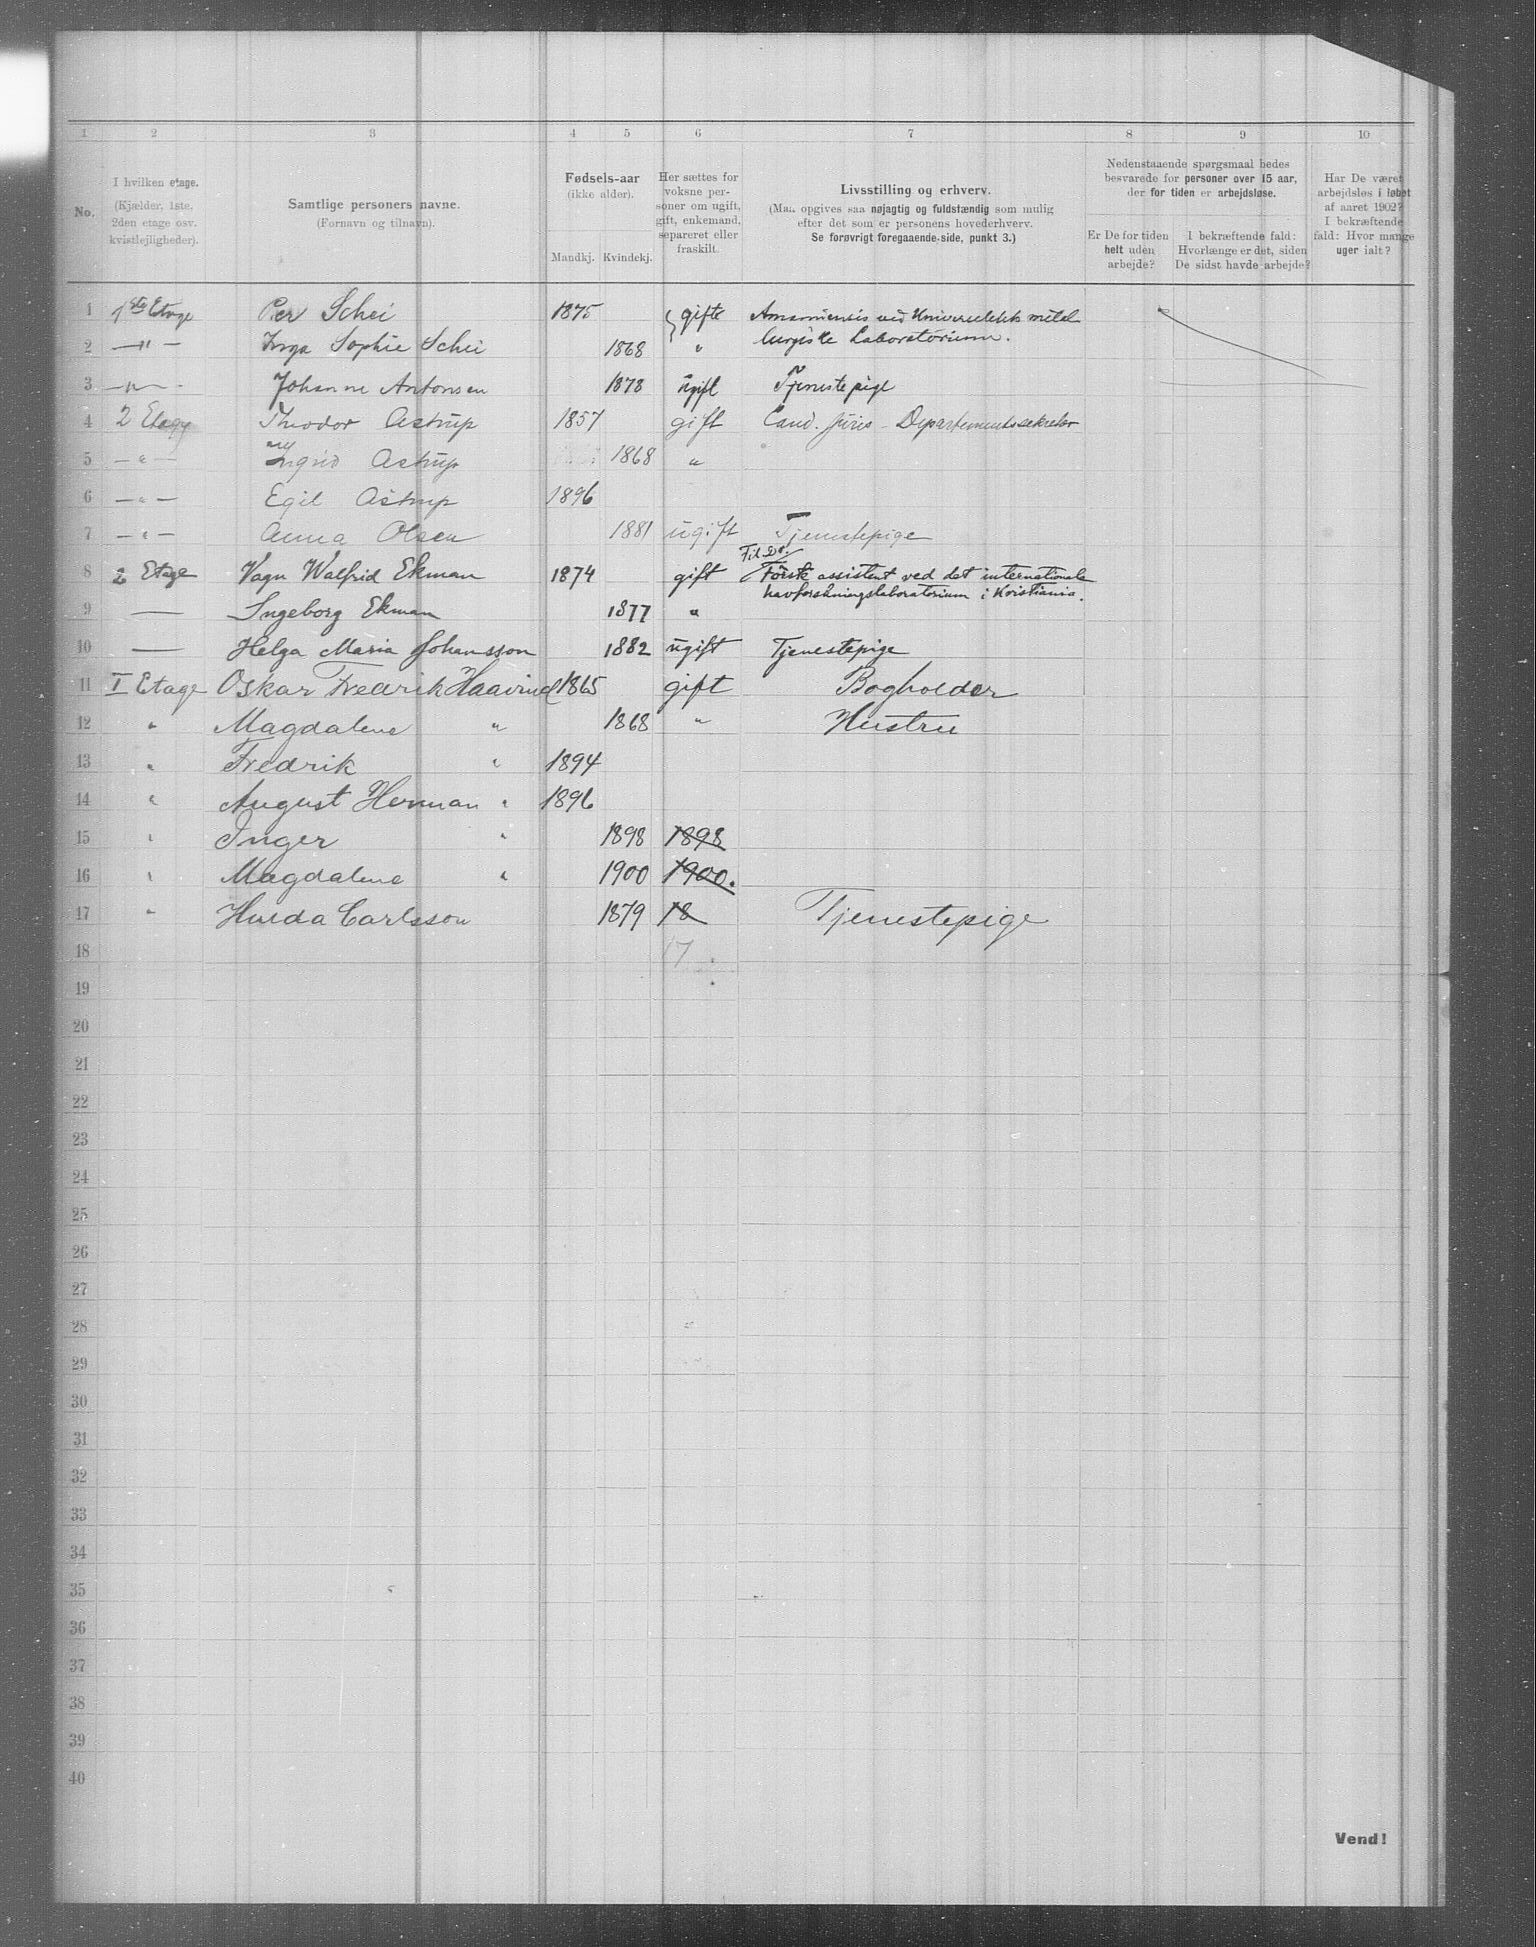 1 2 3 4 5 6 7 8 9 10
No.
I hvilken etage.
(Kjælder, 1ste.
2den etage osv.
kvistlejligheder).
Samtlige personers navne.
(Fornavn og tilnavn).
Fødsels-aar
(ikke alder).
Mandkj. Kvindekj.
Her sættes for
voksne per-
soner om ugift,
gift, enkemand,
separeret eller
fraskilt.
Livsstilling og erhverv.
(Maa opgives saa nøjagtig og fuldstændig som mulig
efter det som er personens hovederhverv.
Se forøvrigt foregaaende side, punkt 3.)
Nedenstaaende spørgsmaal bedes
besvarede for personer over 15 aar,
der for tiden er arbejdsløse.
Er De for tiden
helt uden
arbejde?
I bekræftende fald:
Hvorlænge er det, siden
De sidst havde arbejde?
Har De været
arbejdsløs i løbet
af aaret 1902?
I bekræftende
fald: Hvor mange
uger ialt?
1 1ste Etage Per Schei 1875 gifte Amanuensis ved Universitetets metal
2 —"— Inga Sophie Schei 1868 " lurgiske Laboratorium.
3 —"— Johanne Antonsen 1878 ugift Tjenestepige
4 2 Etage Theodor Astrup 1857 gift Cand. juris - Departementssekretær
5 —"— Ingrid Astrup 1868 "
6 —"— Egil Astrup 1896
7 —"— Anna Olsen 1881 ugift Tjenestepige
Fil. Dr.
8 2 Etage Vagn Walfrid Ekman 1874 gift Förste assistent ved det internationale
havforskningslaboratorium i Kristiania.
9 — Ingeborg Ekman 1877 "
10 — Helga Maria Johansson 1882 ugift Tjenestepige
11 I Etage Oskar Fredrik Haavind 1865 gift Bogholder
12 " Magdalene " 1868 " Hustru
13 " Fredrik " 1894
14 " August Herman " 1896
15 " Inger " 1898 1898
16 " Magdalene " 1900 1900.
17 " Hulda Carlsson 1879 18 Tjenestepige
18 17
19
20
21
22
23
24
25
26
27
28
29
30
31
32
33
34
35
36
37
38
39
40
Vend!